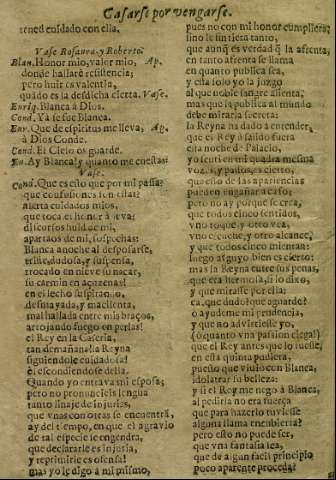 Casarse por vengarse.
tened cuidado con ella.
Vase Rosaura, y Roberto.
Blan. Honor mio, valor mio, Ap.
donde hallarè resistencia;
pero huir es valentia,
quãdo es la desdicha cierta. Vase.
Enriq. Blanca à Dios.
Cond. Ya se fue Blanca.
Enr. Que de espiritus me lleva, Ap.
à Dios Conde.
Cond. El Cielo os guarde.
En. Ay Blanca! y quanto me cuestas!
Vase.
Cond. Que es esto que por mi passa?
que confusiones son estas?
alerta cuidados mios,
que toca el honor à leva:
discursos huid de mi,
apartaos de mi, sospechas:
Blanca anoche al desposarse,
triste, dudosa, y suspensa,
trocado en nieve su nacar,
su carmin en açuzenas!
en el lecho suspirando,
desmayada, y macilenta,
mal hallada entre mis braços,
arrojando fuego en perlas!
el Rey en la Caseria,
tan demañana! la Reyna
siguiendole cuidadosa!
èl escondiendose della.
Quando yo entrava mi esposa;
pero no pronuncie la lengua
tanto linaje de injurias,
que vnas con otras se encuentrã,
ay del tiempo, en que el agravio
de tal especie se engendra,
que declararle es injuria,
y reprimirle es ofensa!
mas yo le digo à mi mismo,
pues no con mi honor cumpliera;
si no le sintiera tanto,
que aunq̃ es verdad q̃ la afrenta,
en tanto afrenta se llama
en quanto publica sea,
y esta solo yo la juzgo
al que noble sangre alienta,
mas que la publica al mundo
debe mirarla secreta:
la Reyna ha dado à entender,
que el Rey à salido fuera
esta noche de Palacio,
yo senti en mi quadra mesma
vozes, y passos, es cierto,
que esto de las apariencias
pueden engañar caso;
pero no ay porque se crea,
que todos cinco sentidos,
vno toque, y otro vea,
vno escuche, y otro alcance,
y que todos cinco mientan:
luego al suyo bien es cierto:
mas la Reyna entre sus penas,
que era hermosa, si lo dixo,
y que mirasse por ella:
ea, que dudo! que aguardo?
ò ayudeme mi prudencia,
y que no advirtiesse yo,
(ò quanto vna passion ciega!)
que el Rey antes que lo fuesse,
en esta quinta pudiera,
puesto que viviò con Blanca,
idolatrar su belleza:
y si el Rey me negò à Blanca,
al pedirla no era fuerça
que para hazerlo tuviesse
alguna llama encubierta?
pero esto no puede ser,
que vna tan noble, que vna tea,
que de algun facil principio
poco aparente proceda?